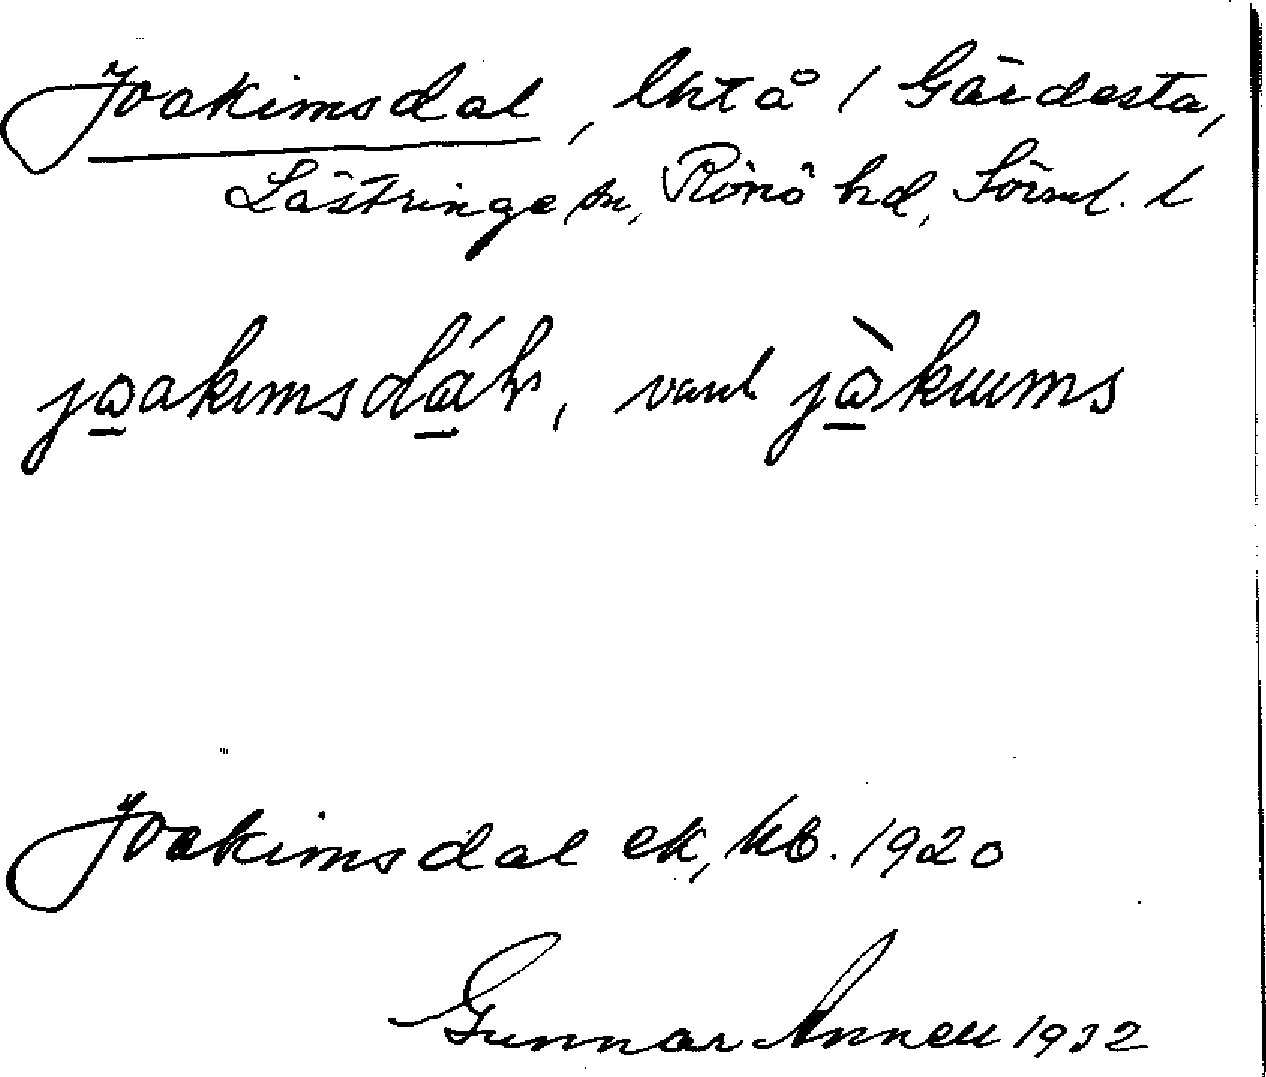 Joakimsdal, lht å 1 Gärdesta,
Lästringe sn, Rönö hd, Sörml. l
joakimsdáls, vanl jòkums
Joakimsdal ek, kb. 1920
Gunnar Annell 1932